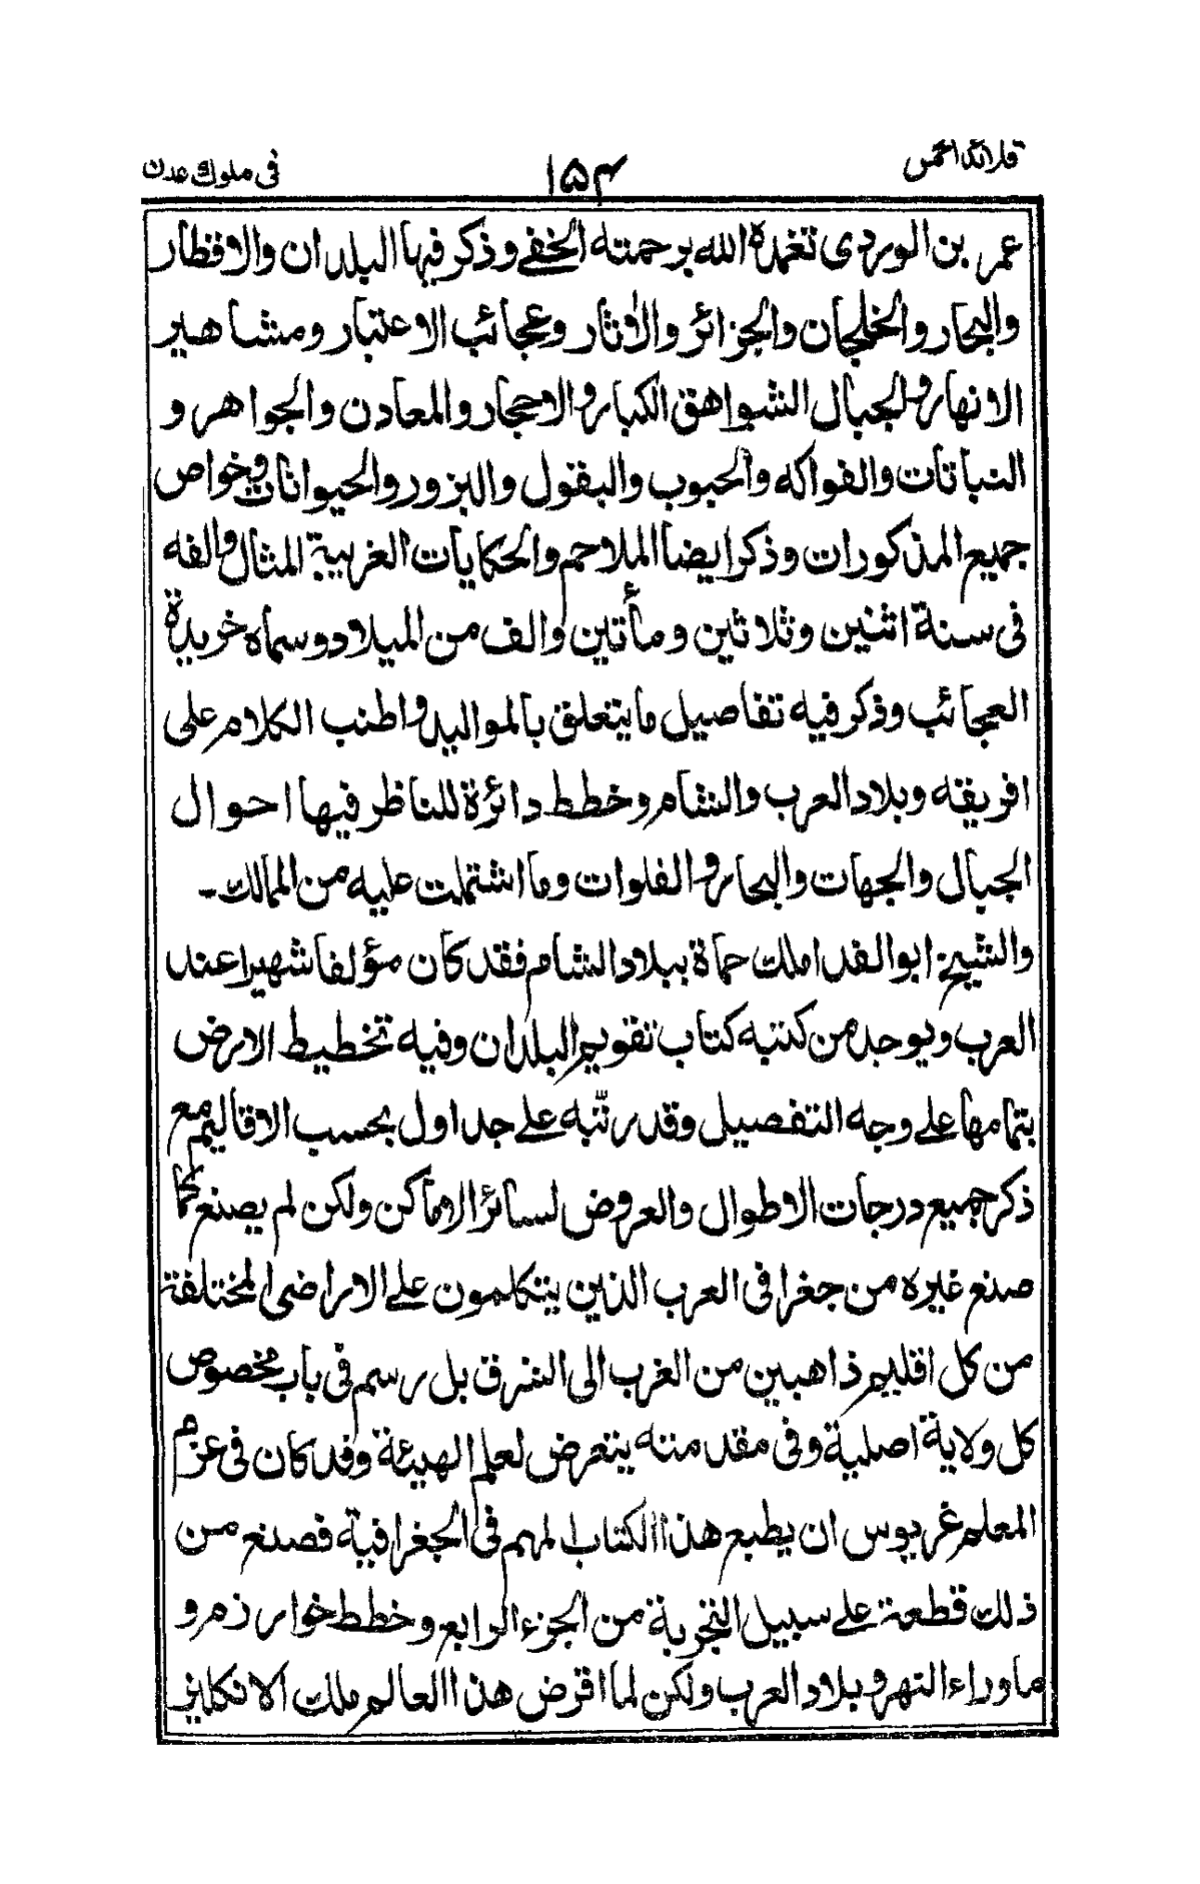 قلائد الخمس
١٥٤
فى ملوك عدن
عمر بن الوردى تغمده الله برحمته الخفے وذكر فيها البلدان والاقطار
والبحار والخلجان والجزائر والاٰثار وعجائب الاعتبار ومشاهير
الانهار والجبال الشواهق الكبار والاحجار والمعادن والجواهر و
النباتات والفواكه والحبوب والبقول والبزور والحيوانات وخواص
جميع المذكورات وذكر ايضا الملاحم والحكايات الغريبة المثال والفه
فى سنة اثنين وثلاثين ومأتين والف من الميلاد وسماه خريدة
العجائب وذكر فيه تفاصيل ما يتعلق بالمواليد واطنب الكلام على
افريقه وبلاد العرب والشام وخطط دائرة للناظر فيها احوال
الجبال والجهات والبحار والفلوات وما اشتملت عليه من الممالك۔
والشيخ ابو الفدا ملك حماة ببلاد الشام فقد كان مؤلفا شهيرا عند
العرب ويوجد من كتبه كتاب تقويم البلدان وفيه تخطيط الارض
بتمامها علے وجه التفصيل وقد رتّبه علے جداول بحسب الاقاليم مع
ذكر جميع درجات الاطوال والعروض لسائر الاماكن ولكن لم يصنع كما
صنع غيره من جغرافى العرب الذين يتكلمون علے الاراضى المختلفة
من كل اقليم ذاهبين من الغرب الى الشرق بل رسم فى باب مخصوص
كل ولاية اصلية وفى مقدمته يتعرض لعلم الهيئة وقد كان فى عزم
المعلم غريوس ان يطبع هذا الكتاب المهم فى الجغرافية فصنع من
ذلك قطعة علے سبيل التجربة من الجزء الرابع وخطط خوارزم و
ماوراء النهر وبلاد العرب ولكن لما اقرض هذا العالم ملك الانكليز